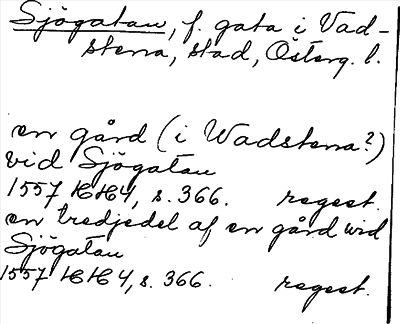 Sjögatan, f. gata i Vad-
stena, stad, Österg. l.
en gård (i Wadstena?)
vid Sjögatan
1557 HH4, s. 366. regest.
en tredjedel af en gård wid
Sjögatan
1557 HH4, s. 366. regest.